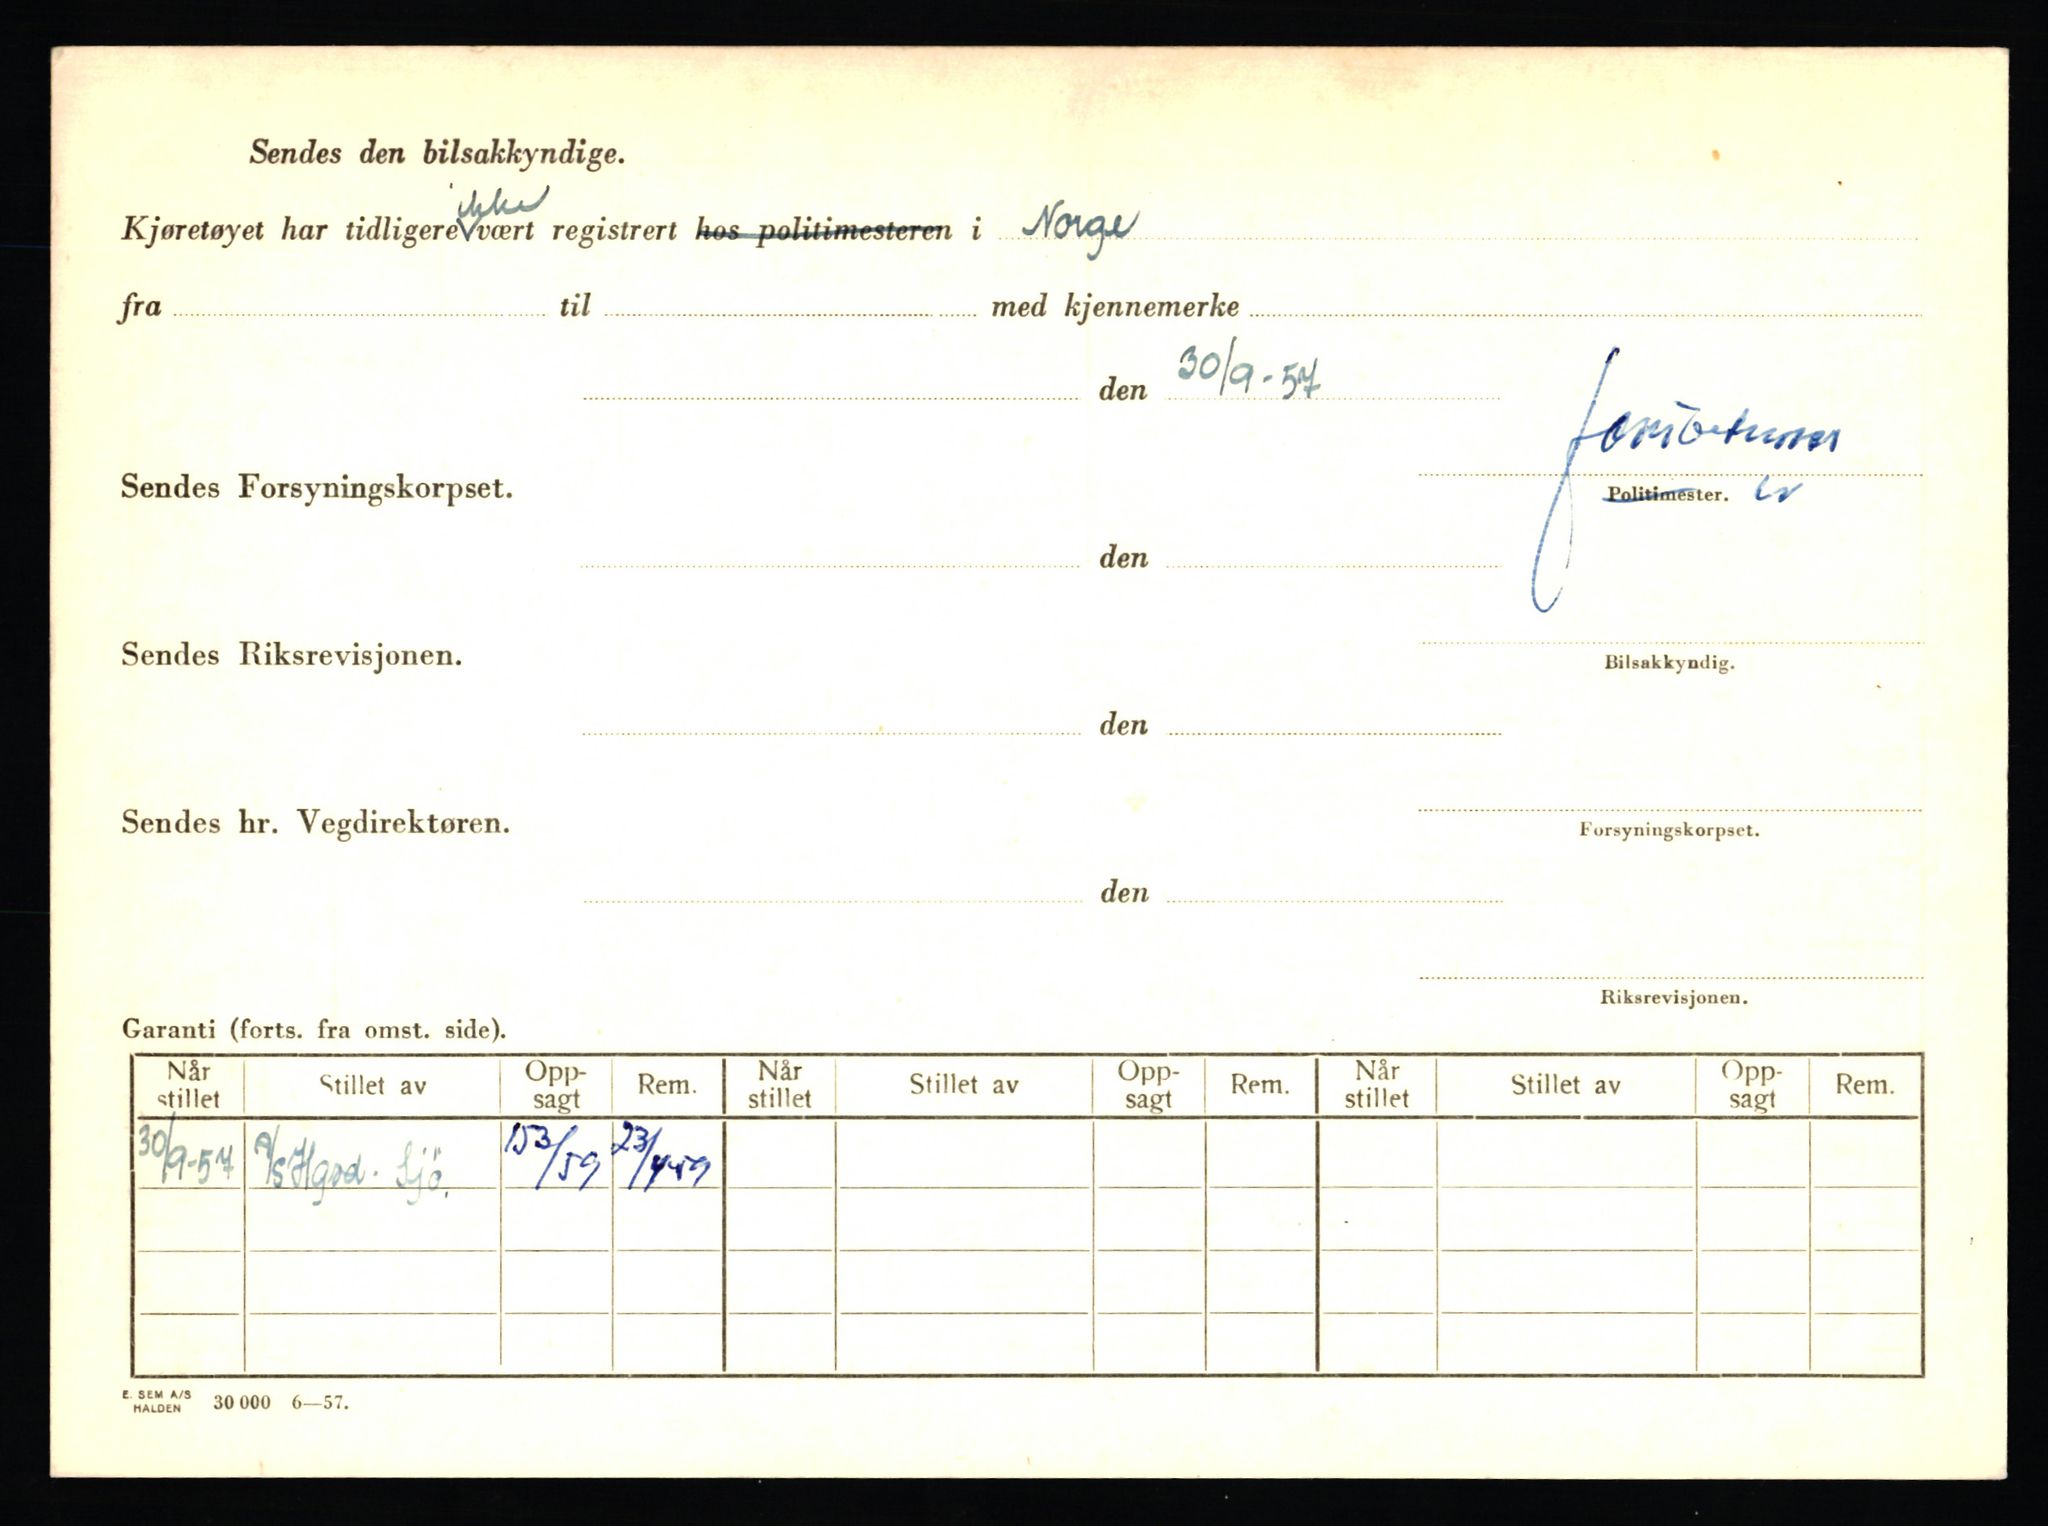 Sendes den bilsakkyndige.
ikke
Kjøretøyet har tidligere vært registrert hos politimesteren i Norge
fra til med kjennemerke
den 30/9-57
Sendes Forsyningskorpset.
Politimester.
den
Sendes Riksrevisjonen.
Bilsakkyndig.
den
Sendes hr. Vegdirektøren.
Forsyningskorpset.
den
Riksrevisjonen.
Garanti (forts. fra omst. side).
Når stillet Stillet av Opp-sagt Rem. Når stillet Stillet av Opp-sagt Rem. Når stillet Stillet av Opp-sagt Rem.
30/9-57 A/S Hgsd. Sjö. 153/59 23/4-59
E. SEM A/S
HALDEN 30 000 6—57.